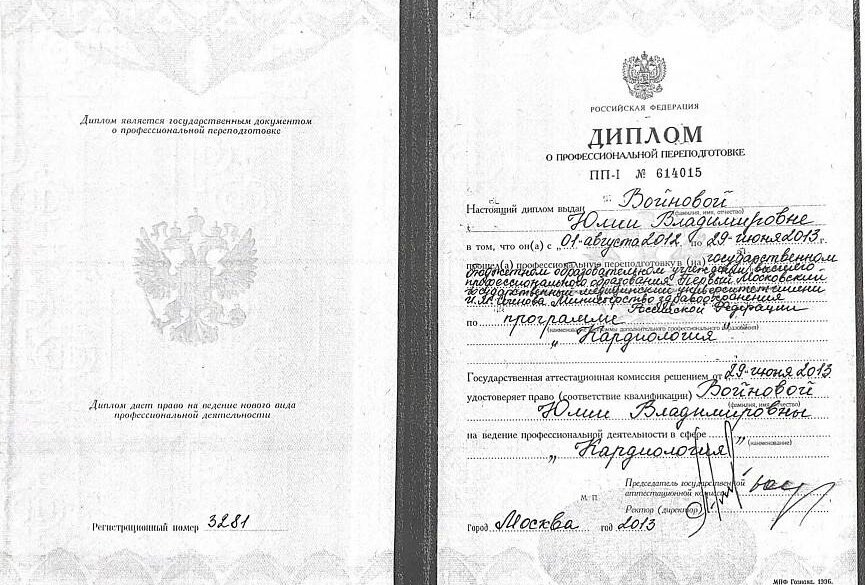 Диплом является государственным документом
о профессиональной переподготовке
Диплом дает право на ведение нового вида
профессиональной деятельности
Регистрационный номер 3281
РОССИЙСКАЯ ФЕДЕРАЦИЯ
ДИПЛОМ
О ПРОФЕССИОНАЛЬНОЙ ПЕРЕПОДГОТОВКЕ
ПП-I № 614015
Настоящий диплом выдан Войновой
(фамилия, имя, отчество)
Юлии Владимировне
в том, что он(а) с „01-августа2012 по 29-июня2013г.
прошел(а) профессиональную переподготовку в (на) государственном
бюджетном образовательном учреждении высшего
профессионального образования Первый Московский
государственный медицинский университет имени
И.М. Сеченова Министерство здравоохранения
Российской Федерации
по программе
(наименование программы дополнительного профессионального образования)
„Кардиология"
Государственная аттестационная комиссия решением от 29-июня 2013
удостоверяет право (соответствие квалификации) Войновой
(фамилия, имя, отчество)
Юлии Владимировны
на ведение профессиональной деятельности в сфере
(наименование)
„Кардиология"
Председатель государственной
аттестационной комиссии
М. П.
Ректор (директор)
Город Москва год 2013
МПФ Гознака. 1996.